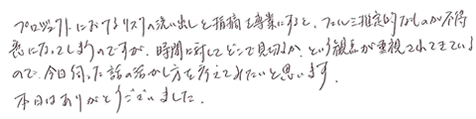 プロジェクトにおけるリスクの洗い出しと指摘を専業にすると、フェルミ推定的なものが不得
意になってしまうのですが、時間に対してどこで見切るか、という観点が重視されてきている
ので、今日伺った話の活かし方を考えてみたいと思います。
本日はありがとうございました。